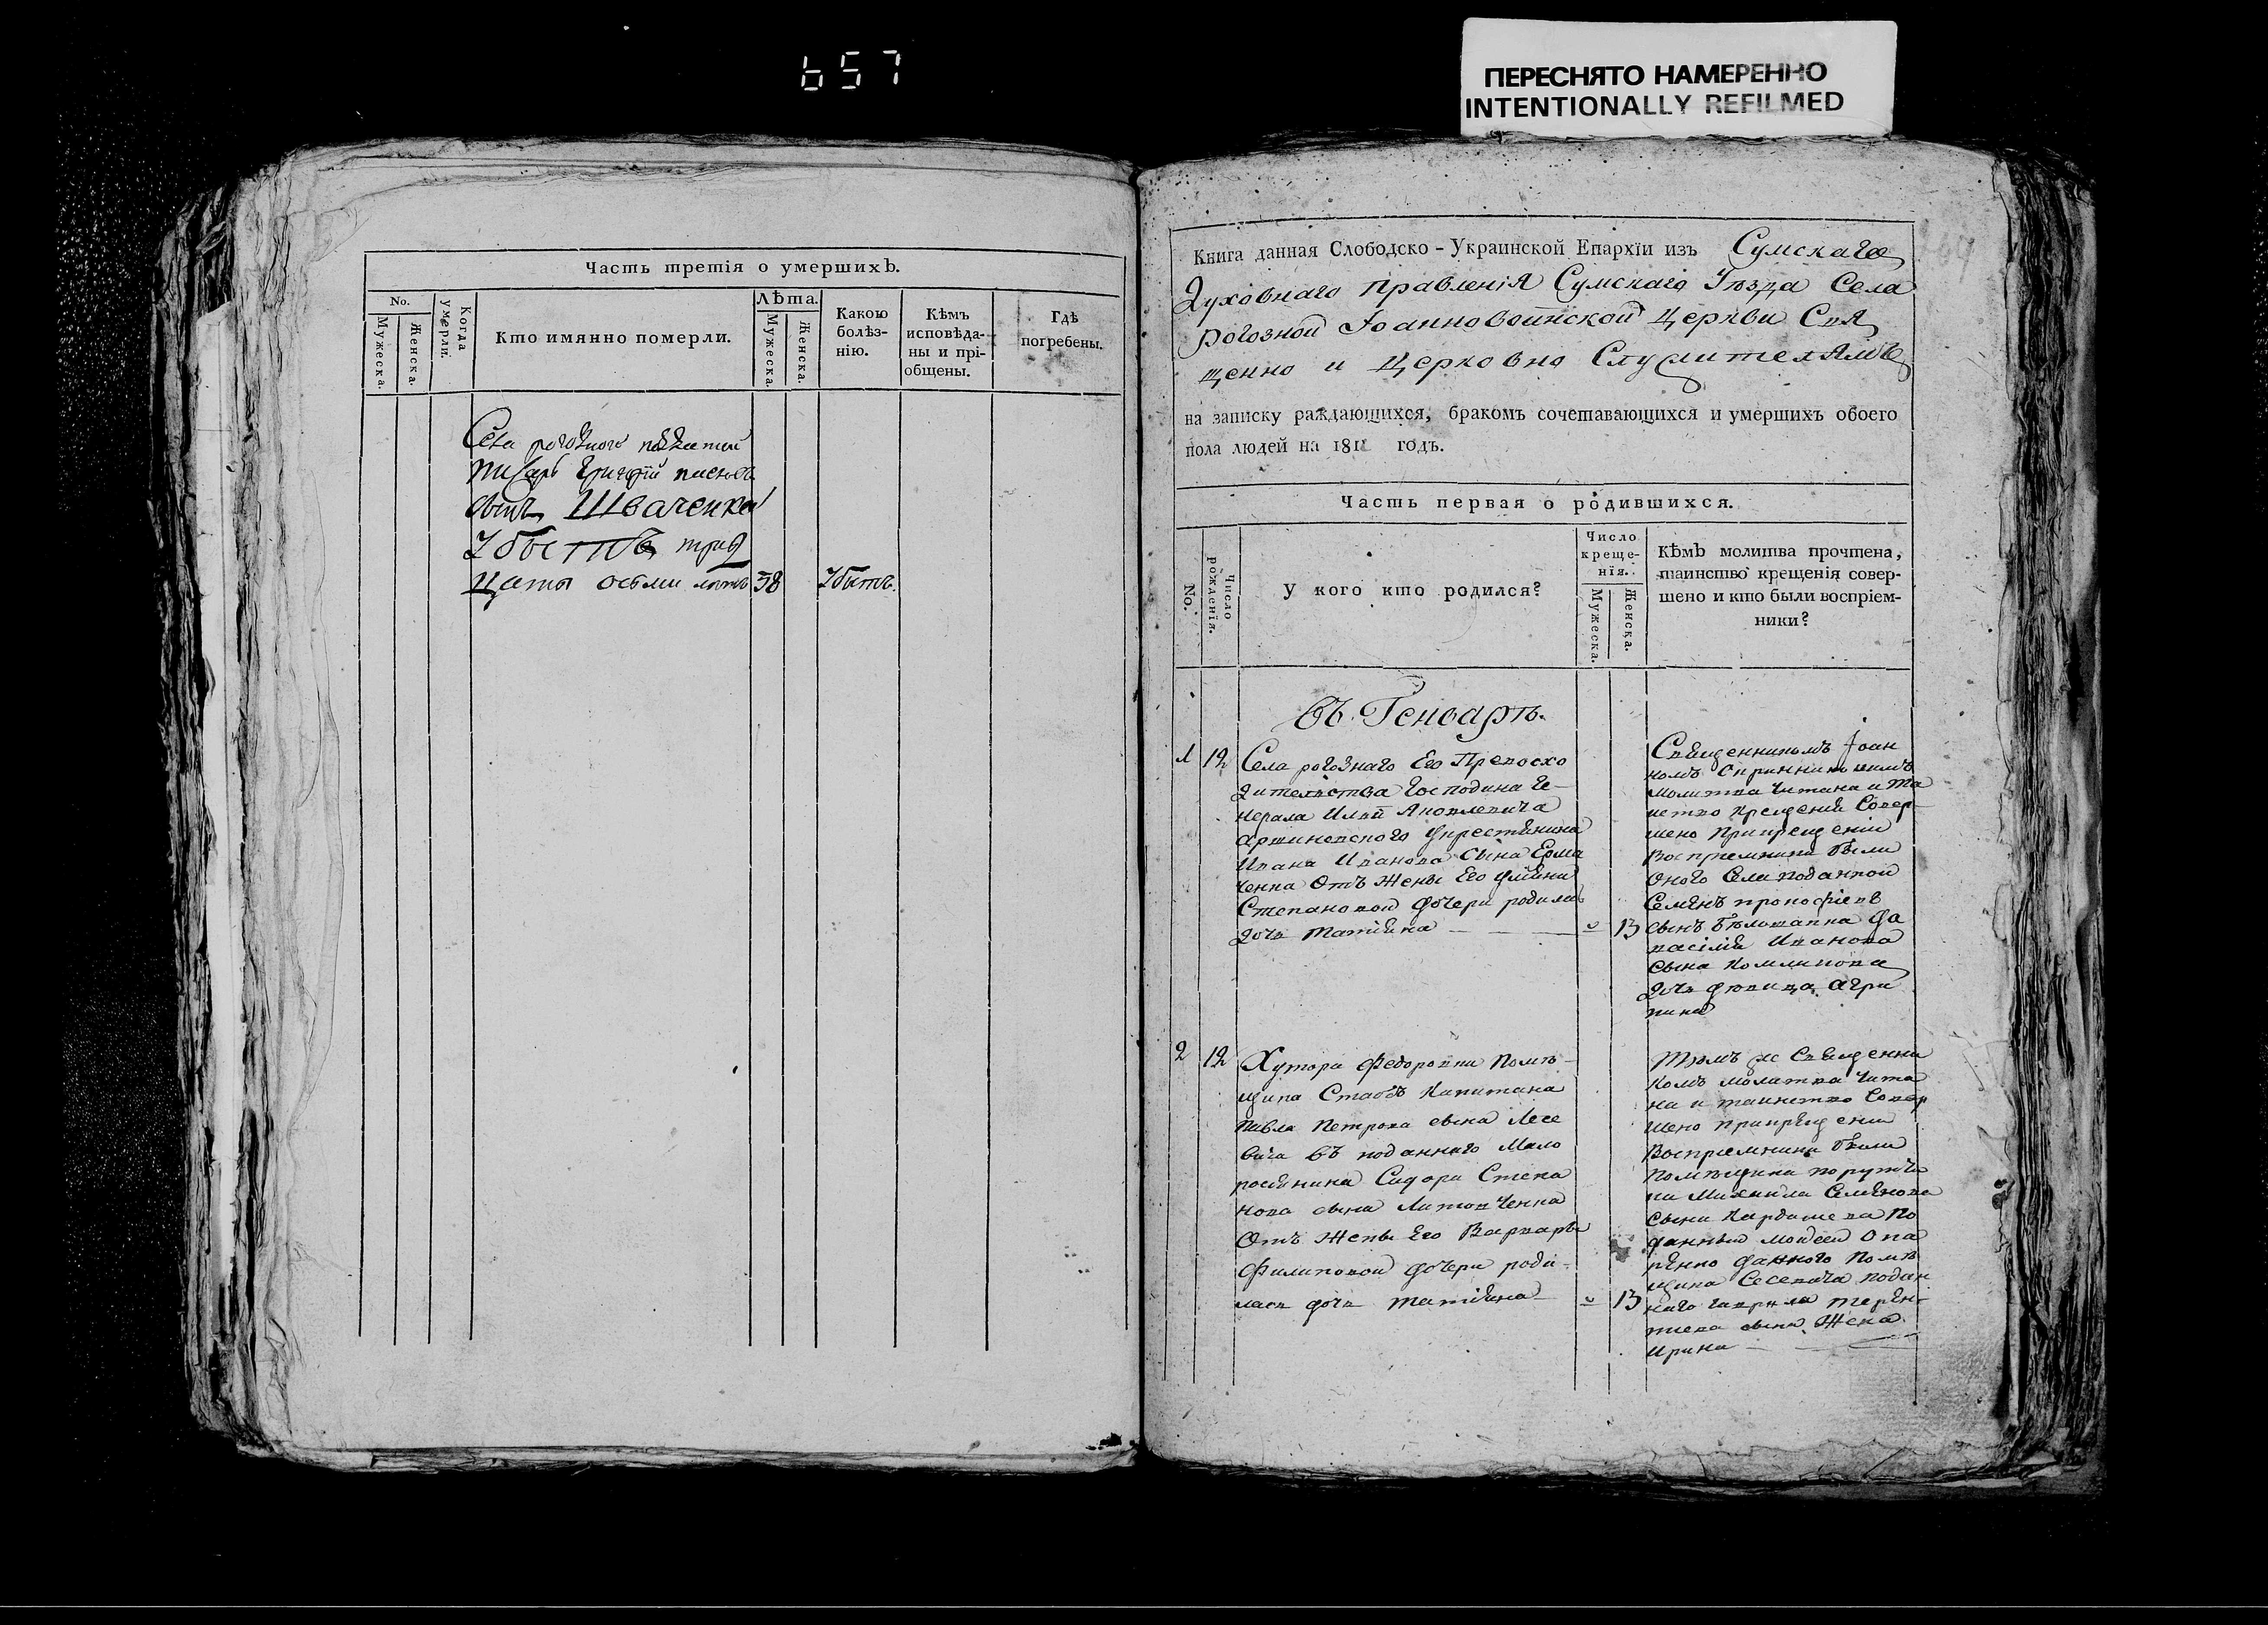 657
ПЕРЕСНЯТО НАМЕРЕННО
INTENTIONALLY REFILMED
Часть третія о умершихъ.
No.
Мужеска.
Женска.
Когда умерли.
Кто имянно померли.
Лѣта.
Мужеска.
Женска.
Какою
болѣз-
нію.
Кѣмъ
исповѣда-
ны и прі-
общены.
Гдѣ
погребены.
Села
писарь Григорій
сынъ Шваченко
Убитъ трид
цати осьми лѣтъ 38 Убитъ.
Книга данная Слободско-Украинской Епархїи изъ Сумскаго
Духовнаго Правленія Сумскаго Уѣзда Села
Рогозной Іоанновоинской Церкви Свя
щенно и Церковно Служителямъ
на записку раждающихся, бракомъ сочетавающихся и умершихъ обоего
пола людей на 1811 годъ.
Часть первая о родившихся.
No.
Число рожденїя.
У кого кто родился?
Число
креще-
нїя.
Мужеска.
Женска.
Кѣмъ молитва прочтена,
таинство крещенія совер-
шено и кто были воспріем-
ники?
Въ Генварѣ.
1 12 Села рогознаго Его Превосхо
дителства Господина Ге-
нерала Яковлевича
крестянина
Ивана Иванова сына Ерма
ченка Отъ жены Его
Степановой дочери родилас
дочь татіяна 13
Священникомъ Іоан
номъ
молитва читана и та
инство крещенія Совер-
шено при крещеніи
Воспріемники были
оного Села поданной
Семенъ прокофіевъ
сынъ да
василія Иванова
сына
дочь девица агри
пина
2 12 Хутора Федоровки помѣ-
щика Стабсъ Капитана
Павла Петрова сына
поданнаго Мало
росіянина Сидора Степа
нова сына Литовченка
Отъ Жены Его Варвары
Филиповой дочери роди-
лась дочь татіяна 13
Тѣмъ же Священни
комъ молитва чита
на и таинство Совер
шено при крещеніи
Воспріемники были
помѣщика поручи
ка Михаила Семенова
сына по
данный моисей
помѣ
щика подан
наго гаврила терен-
тиева сына Жена
Ирина